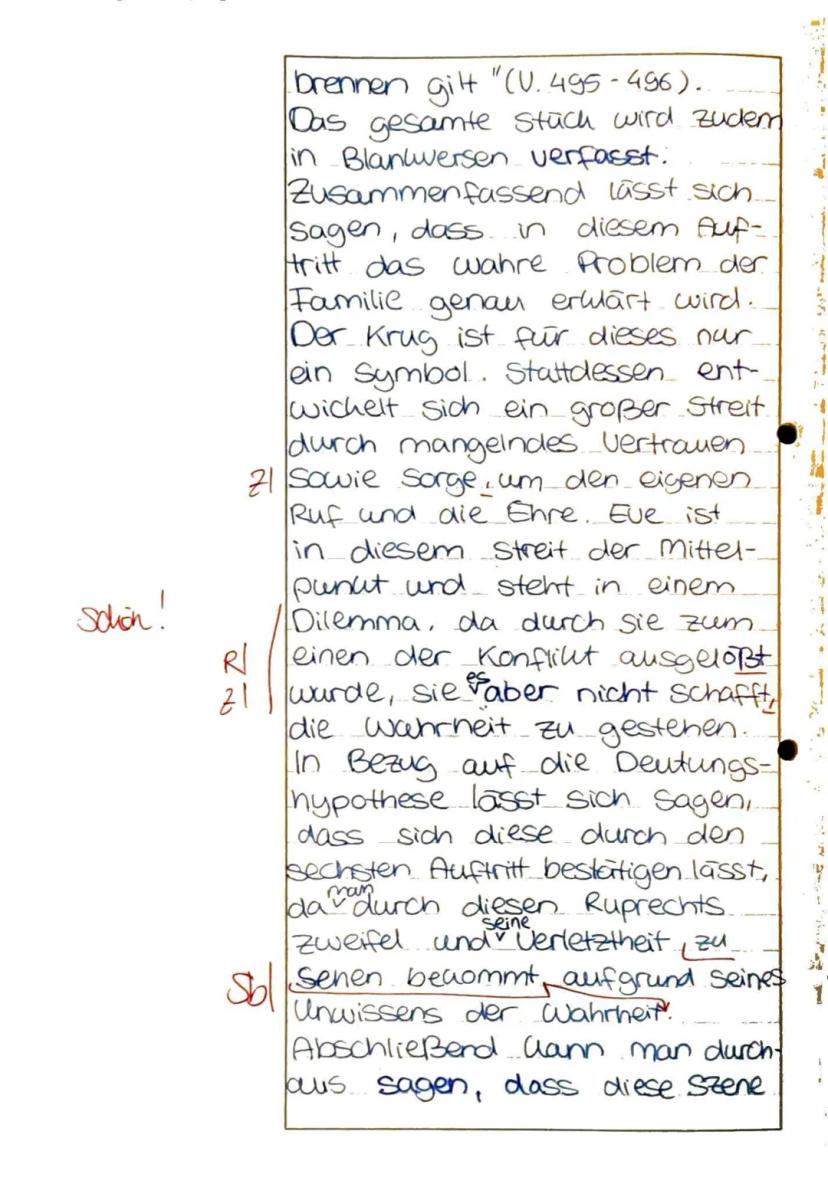 brennen gilt "(V. 495 - 496).
Das gesamte Stück wird zudem
in Blankversen verfasst.
Zusammenfassend lässt sich
sagen, dass in diesem Auf-
tritt das wahre Problem der
Familie genau erklärt wird.
Der Krug ist für dieses nur
ein Symbol. Stattdessen ent-
wickelt sich ein großer Streit
durch mangelndes Vertrauen
Z| sowie Sorge, um den eigenen
Ruf und die Ehre. Eve ist
in diesem Streit der Mittel-
punkt und steht in einem
schön! Dilemma, da durch sie zum
R| einen der Konflikt ausgelößt
Z| wurde, sie es aber nicht schafft,
die Wahrheit zu gestehen.
In Bezug auf die Deutungs-
hypothese lässt sich sagen,
dass sich diese durch den
sechsten Auftritt bestätigen lässt,
da man durch diesen Ruprechts
Zweifel und seine Verletztheit zu
Sb| sehen bekommt, aufgrund seines
Unwissens der Wahrheit.
Abschließend kann man durch-
aus sagen, dass diese Szene